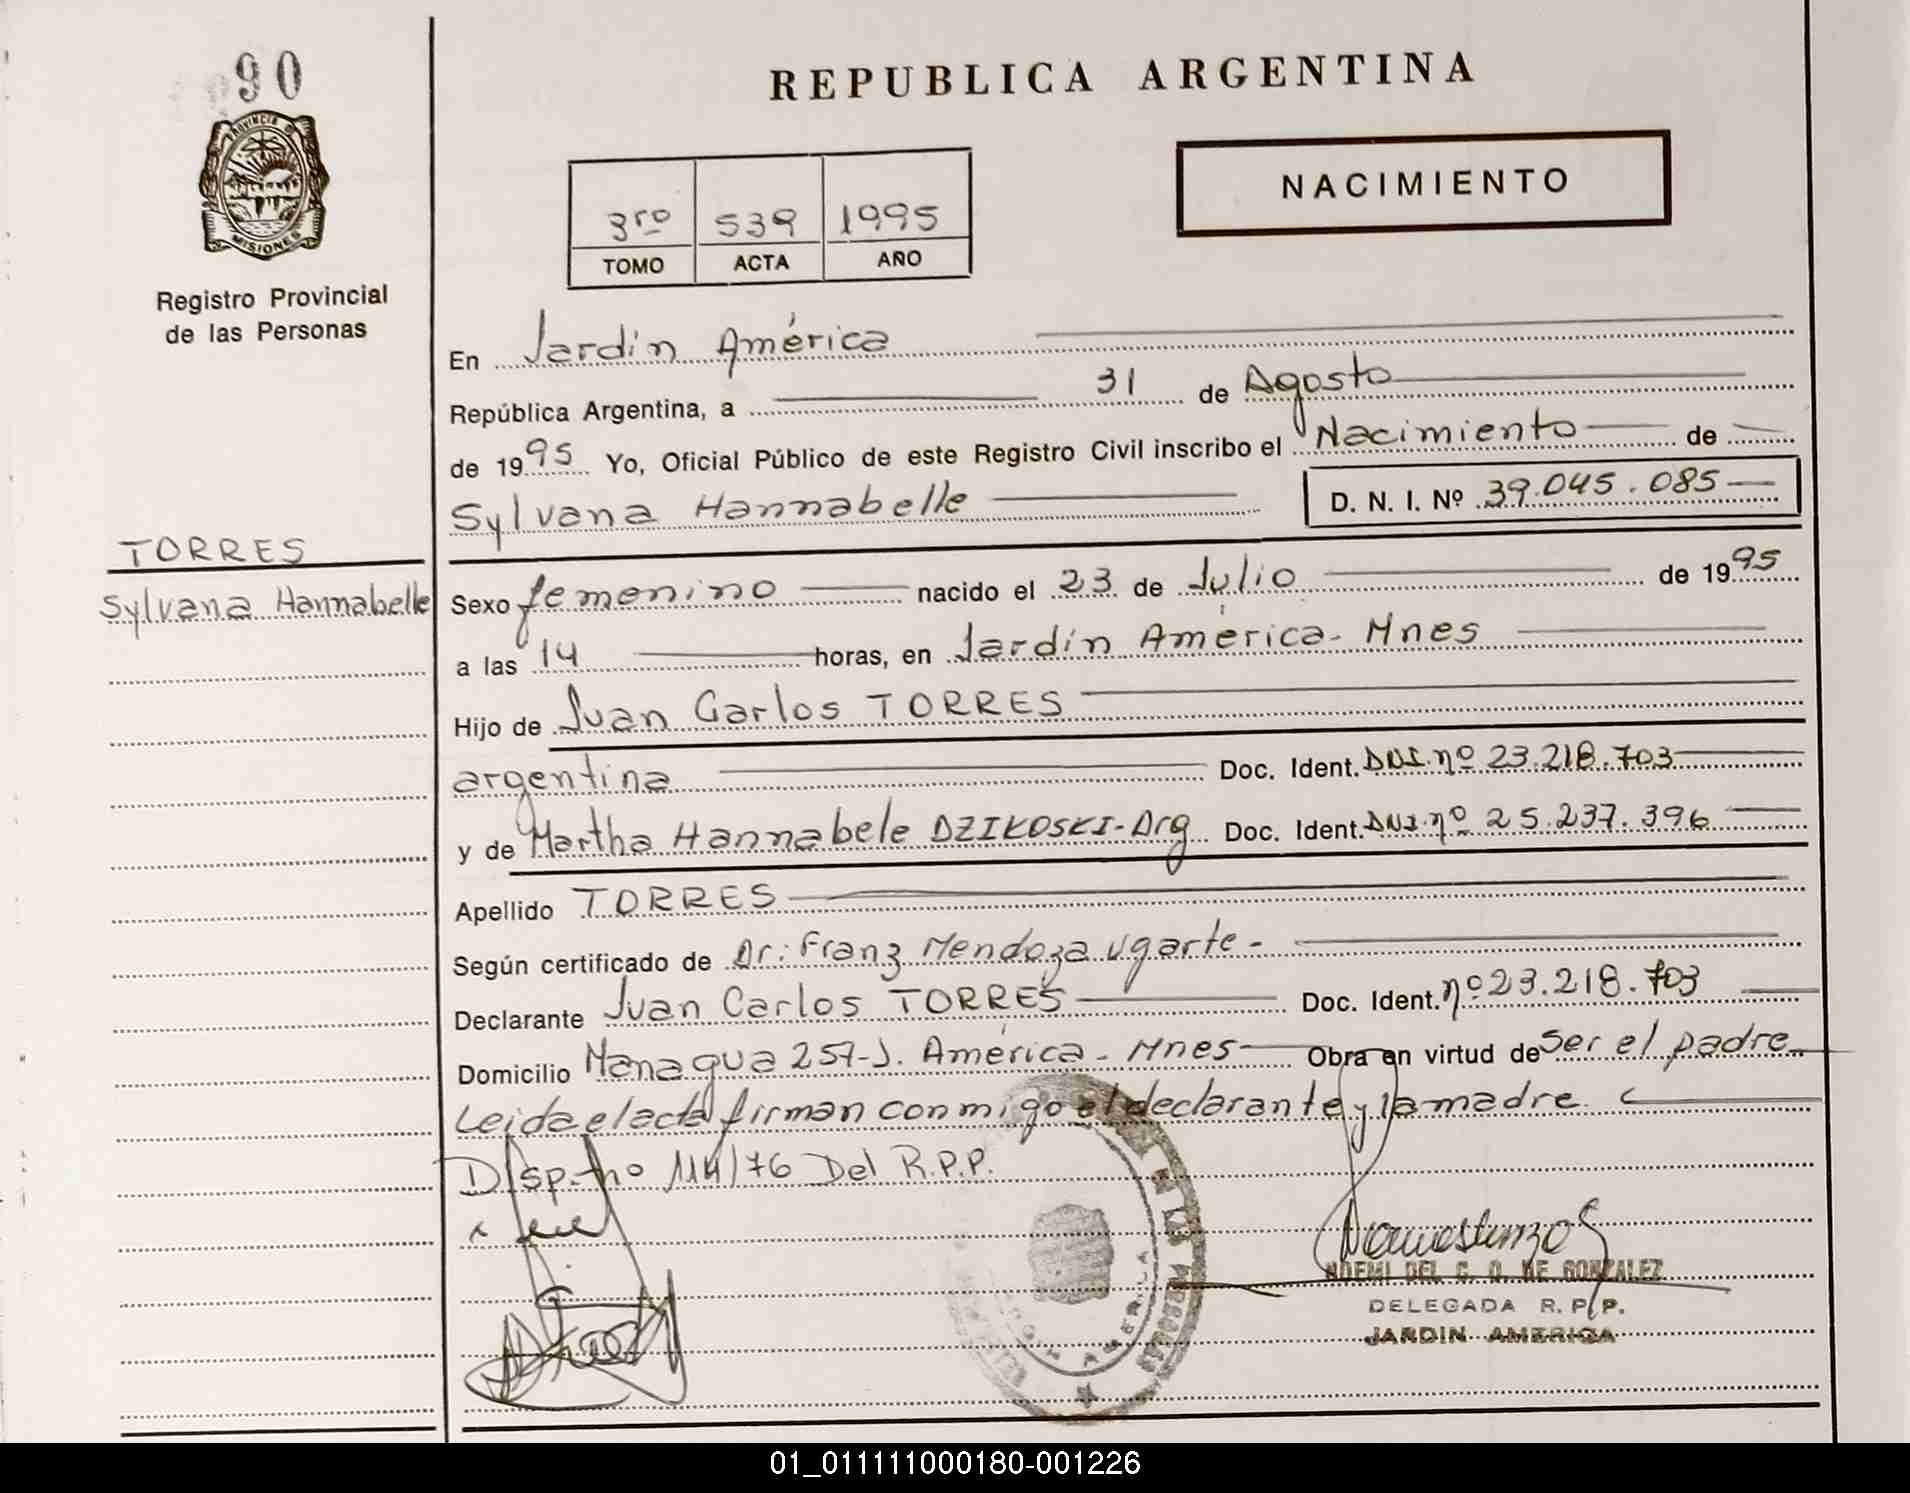 90
PROVINCIA DE
MISIONES
Registro Provincial
de las Personas
REPUBLICA ARGENTINA
NACIMIENTO
3ro 539 1995
TOMO ACTA AÑO
En Jardín América
República Argentina, a 31 de Agosto
de 1995 Yo, Oficial Público de este Registro Civil inscribo el Nacimiento de
Sylvana Hannabelle D. N. I. Nº 39.045.085
TORRES
Sylvana Hannabelle
Sexo femenino nacido el 23 de Julio de 1995
a las 14 horas, en Jardín América - Mnes
Hijo de Juan Carlos TORRES
argentina Doc. Ident. DNI. nº 23.218.703
y de Martha Hannabele DZIKOSKI - Arg Doc. Ident. DNI. nº 25.237.396
Apellido TORRES
Según certificado de Dr: Franz Mendoza Ugarte -
Declarante Juan Carlos TORRES Doc. Ident. nº 23.218.703
Domicilio Managua 257 - J. América - Mnes Obra en virtud de Ser el padre
Leida el acta firman conmigo el declarante y la madre
Disp. nº 114/76 Del R.P.P.
NOEMI DEL C. O. DE GONZALEZ
DELEGADA R. P. P.
JARDIN AMERICA
01_011111000180-001226